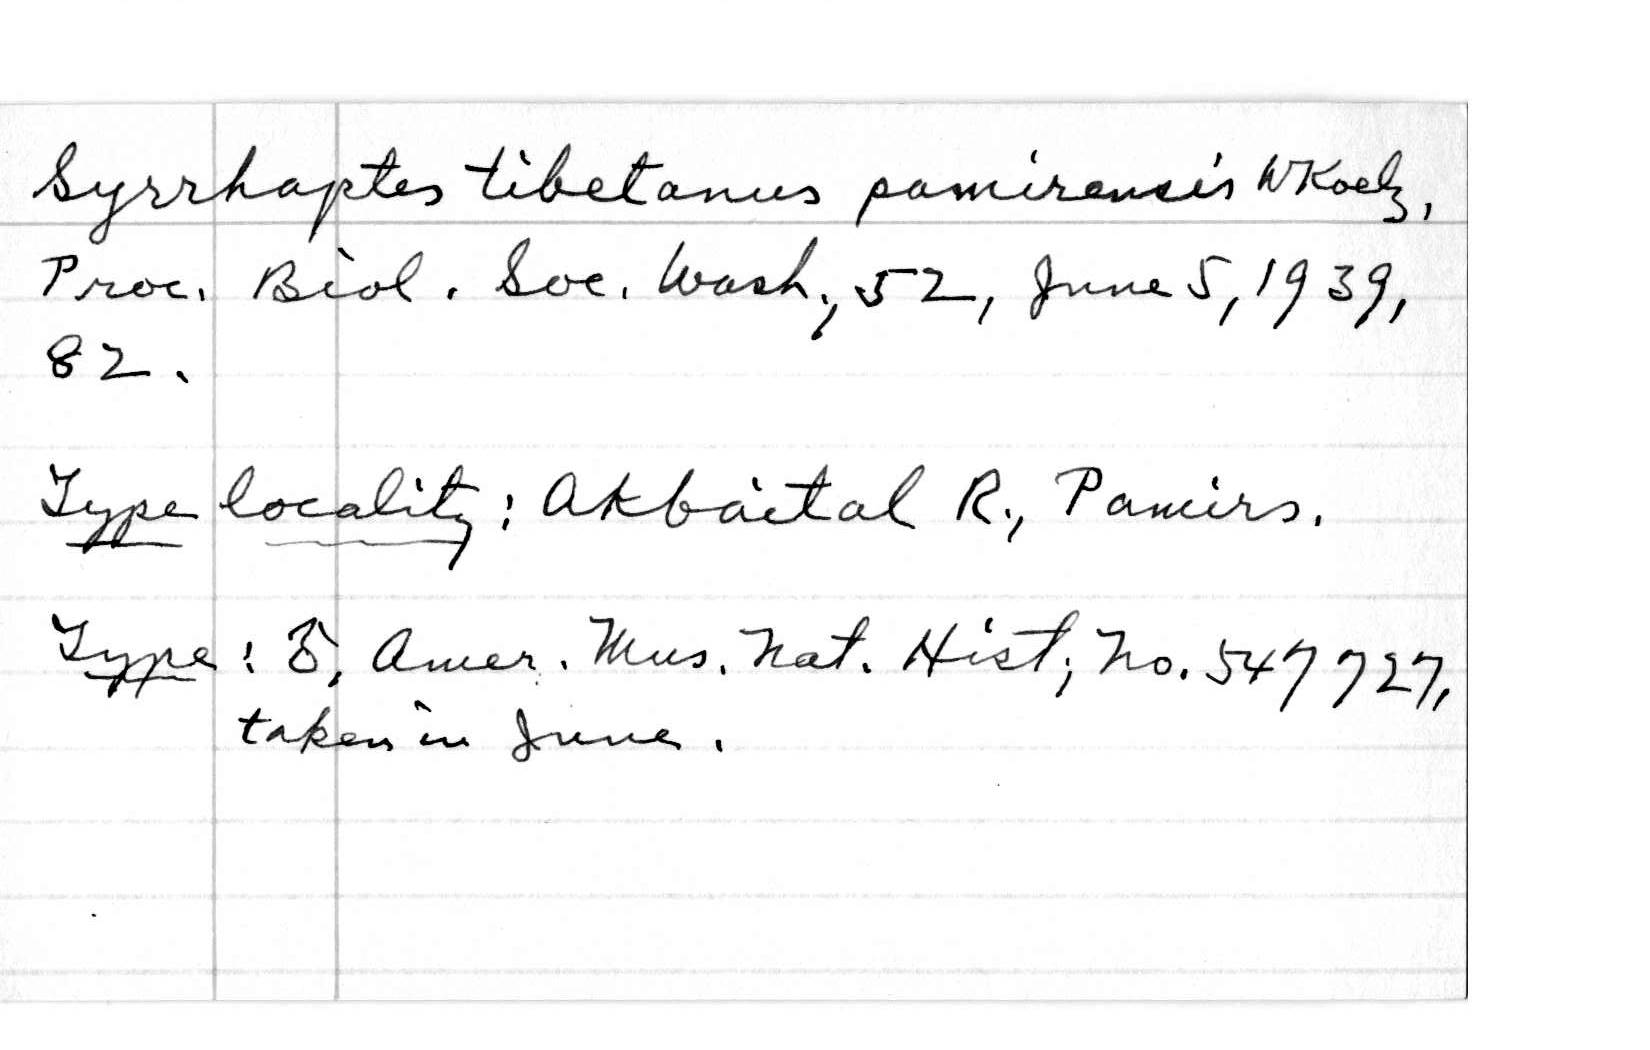 Syrrhaptes tibetanus pamirensis W Koelz,
Proc. Biol. Soc. Wash., 52, June 5, 1939,
82.
Type locality: Akbaital R., Pamirs.
Type: ♂, Amer. Mus. Nat. Hist., No. 547727,
taken in June.